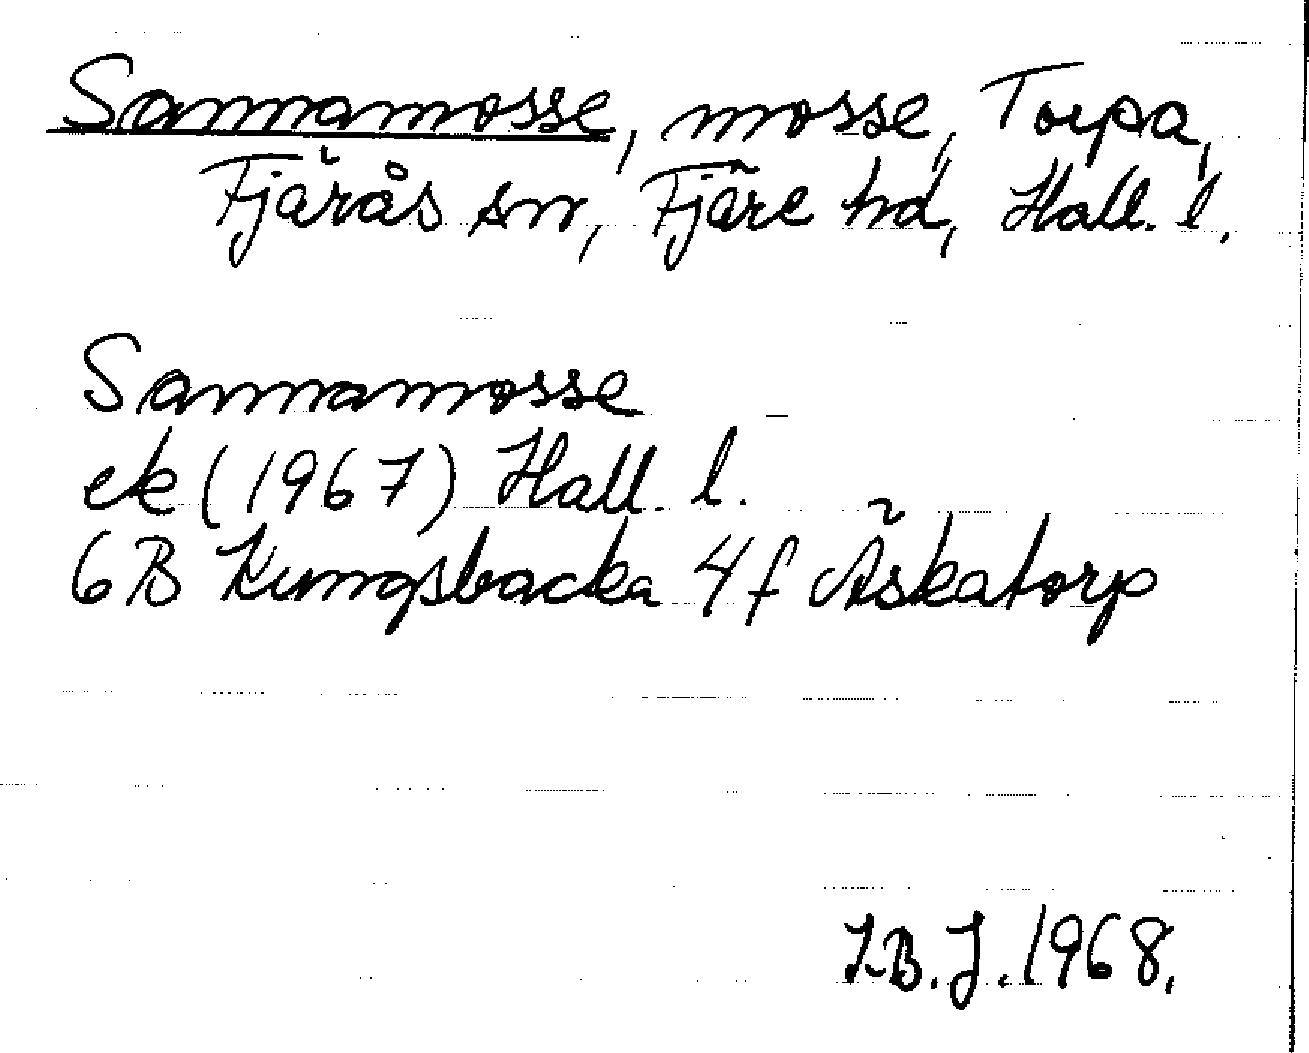 Sannamosse, mosse, Torpa,
Fjärås sn, Fjäre hd, Hall. l.
Sannamosse
ek (1967) Hall. l.
6B Kungsbacka 4f Äskatorp
I.B.J. 1968.